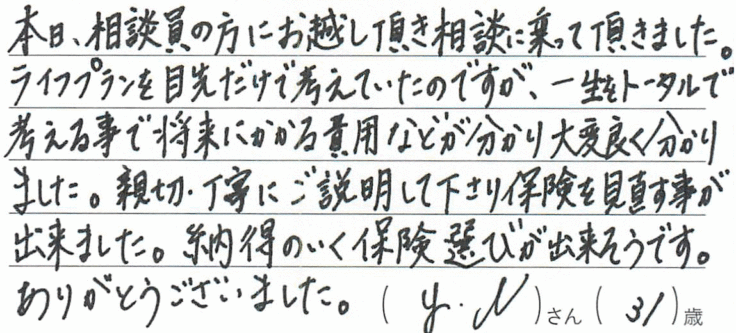 本日、相談員の方にお越し頂き相談に乗って頂きました。
ライフプランを目先だけで考えていたのですが、一生をトータルで
考える事で将来にかかる費用などが分かり大変良く分かり
ました。親切・丁寧にご説明して下さり保険を見直す事が
出来ました。納得のいく保険選びが出来そうです。
ありがとうございました。(y・N)さん(31)歳